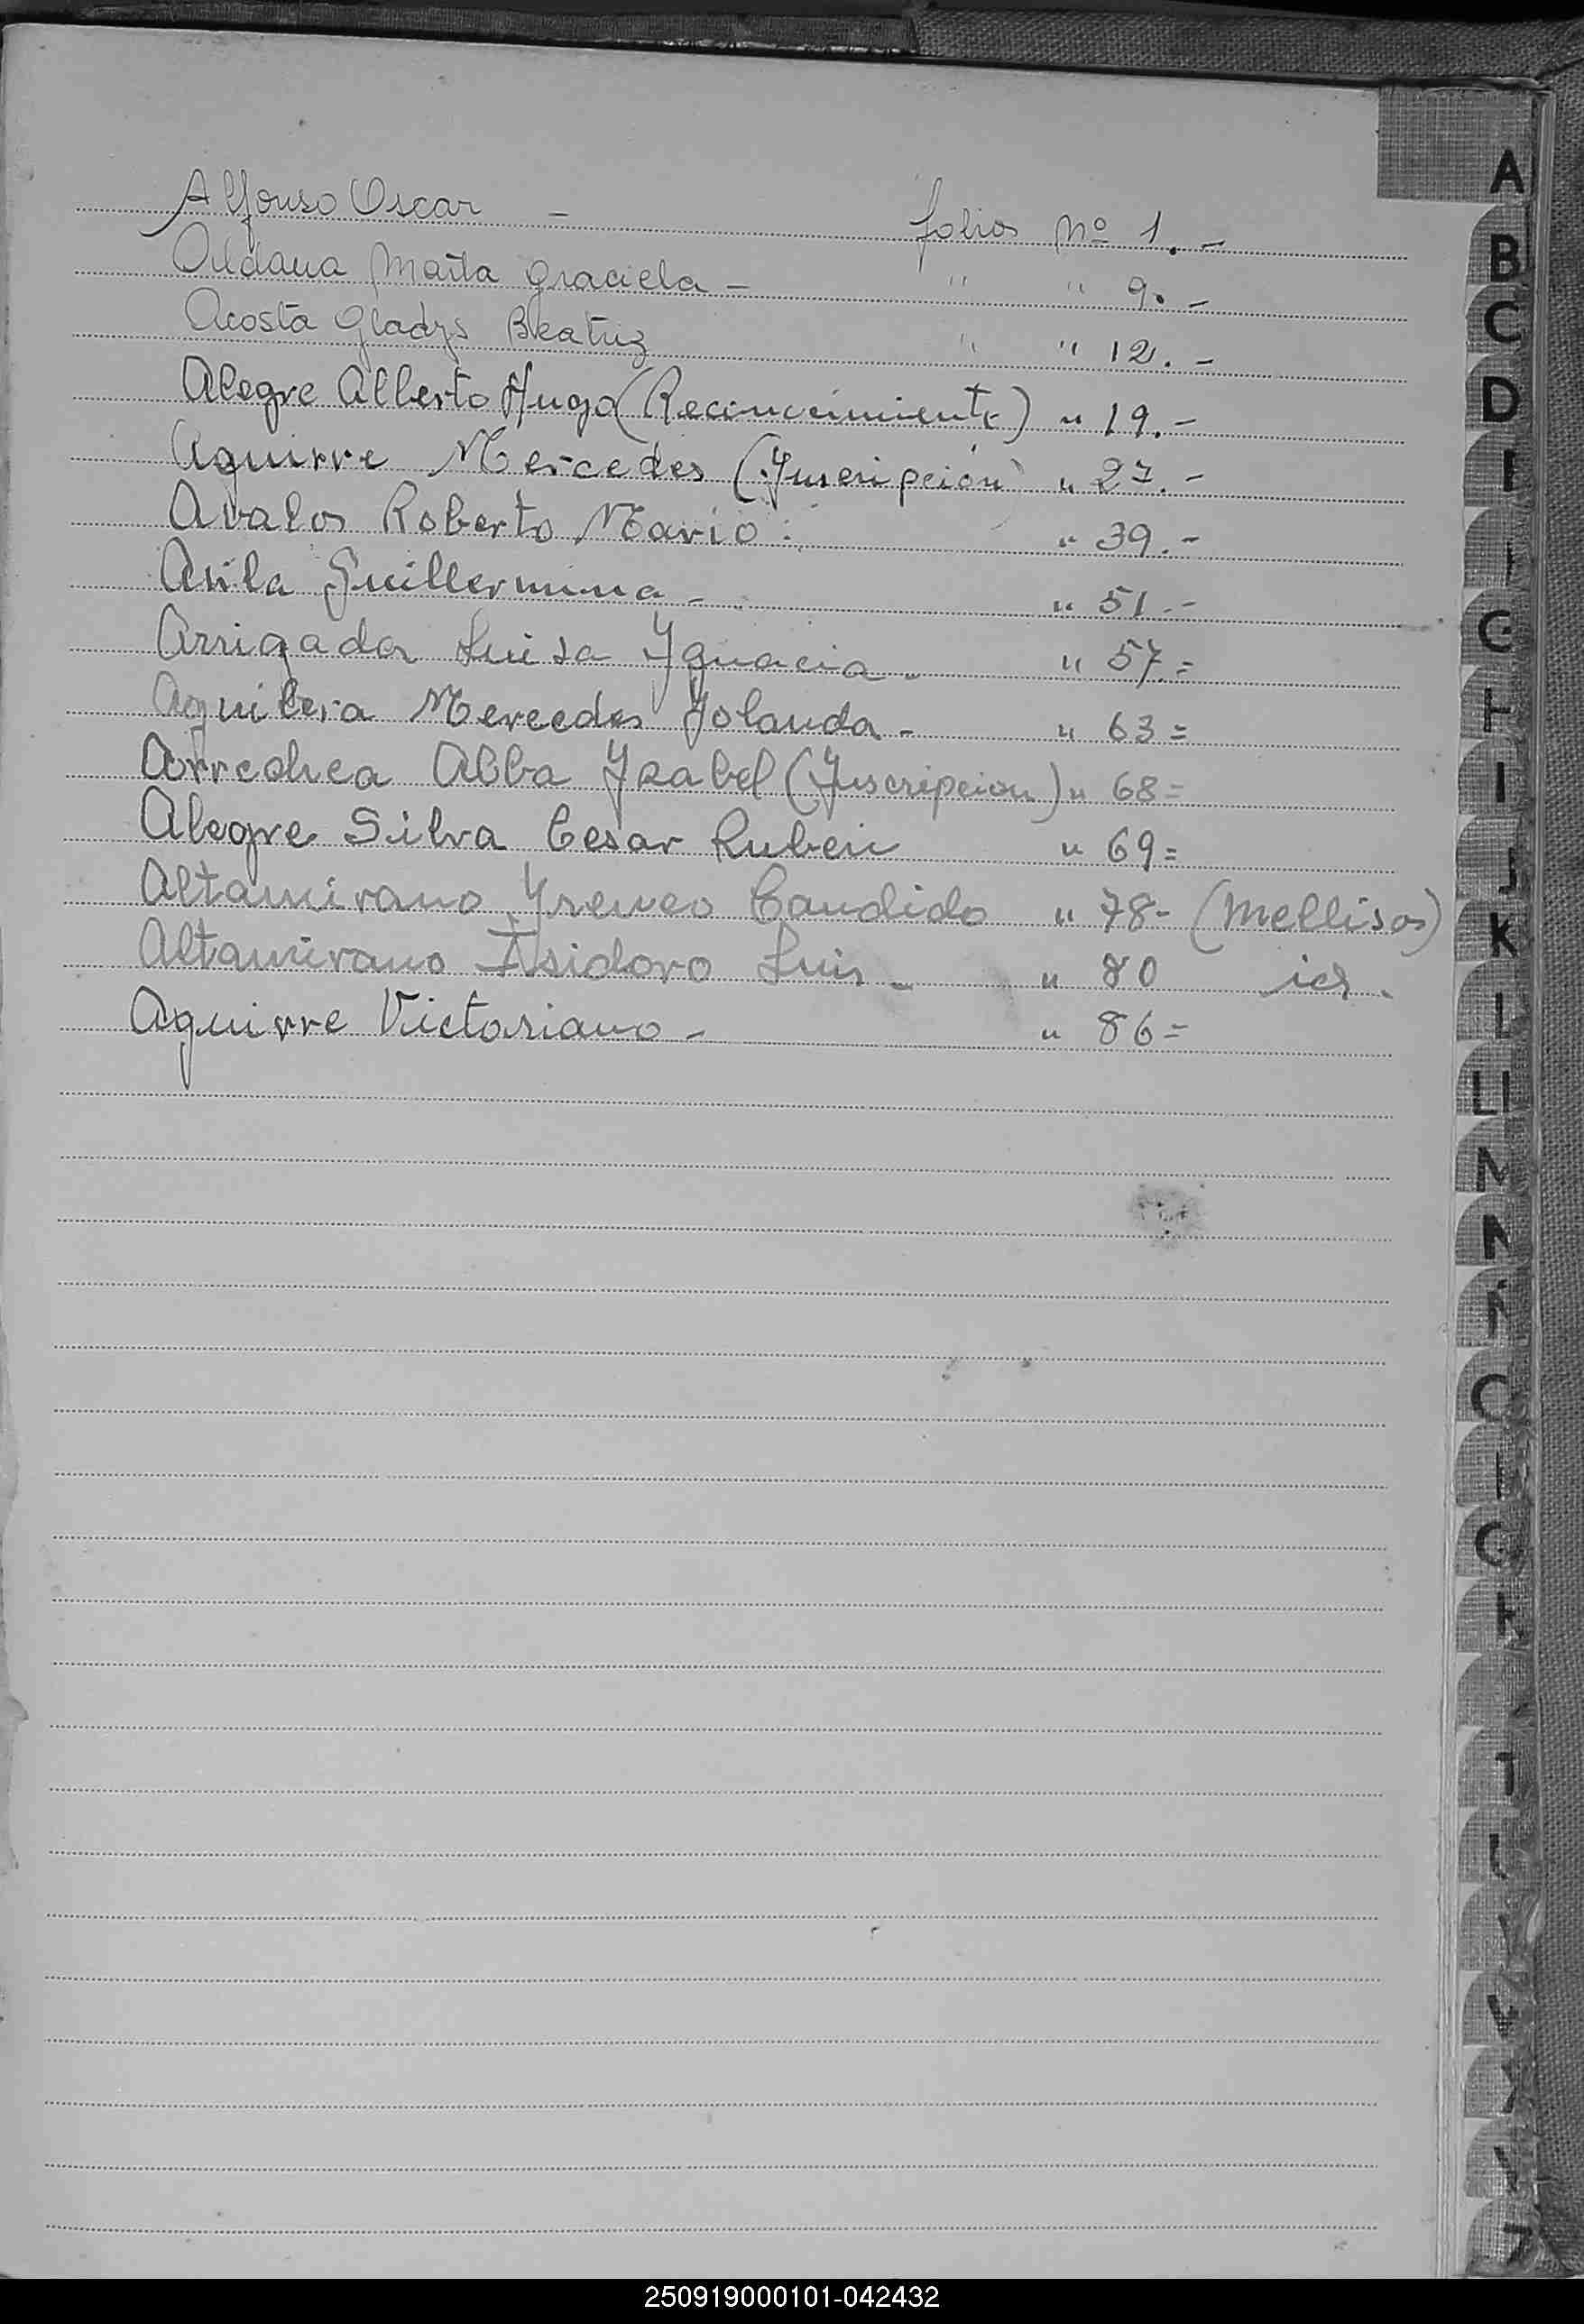 Alfonso Oscar - folios Nº 1.-
Aldana Marta Graciela - " " 9.-
Acosta Gladys Beatriz " " 12.-
Alegre Alberto Hugo (Reconocimiento) " 19.-
Aguirre Mercedes (Yuscripción) " 27.-
Avalos Roberto Mario. " 39.-
Avila Guillermina - " 51.-
Arrigada Luisa Ygnacia - " 57.=
Aguilera Mercedes Yolanda - " 63=
Arrechea Alba Yzabel (Ynscripcion) " 68=
Alegre Silva Cesar Ruben " 69=
Altamirano Yreneo Candido " 78- (Mellisos)
Altamirano Isidoro Luis - " 80 id.
Aguirre Victoriano - " 86=
A
B
C
D
G
I
J
K
L
Ll
M
N
T
250919000101-042432